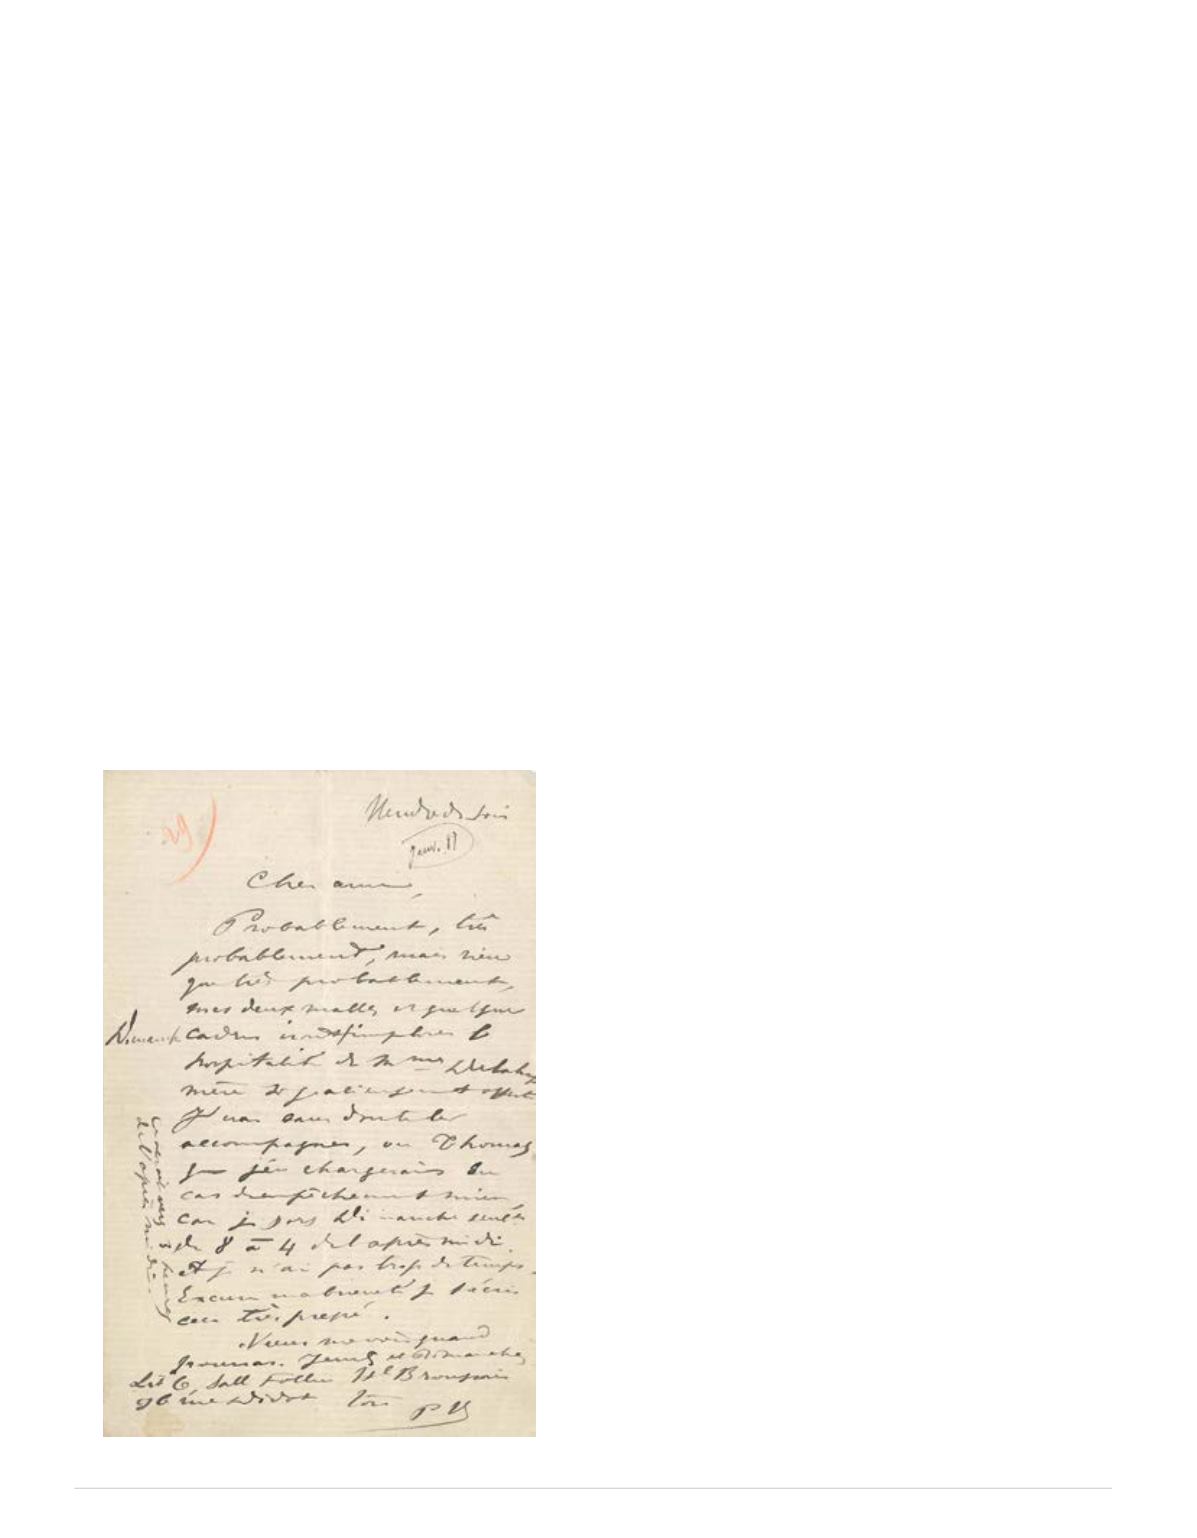 Vendredi soir
29
janv. 87
Cher ami,
Probablement, très
probablement, mais rien
que très probablement,
mes deux malles et quelques
Dimanche
cadres
hospitalité de Mme
mère si gracieusement offerte
J'irai sans doute les
accompagner, ou Thomas
que j'en chargerais en
cas d'empêchement mien,
car je sors Dimanche
de 8 à 4 de l'après midi.
Et je n'ai pas trop de temps.
Excuse ma brièveté je t'écris
ceci très pressé.
Viens me voir quand
pourras. Jeudis et Dimanches,
Lit 6 Salle Follin Hl Broussais
96 rue Didot Ton
P V
ce serait vers 3 heures
de l'après midi.